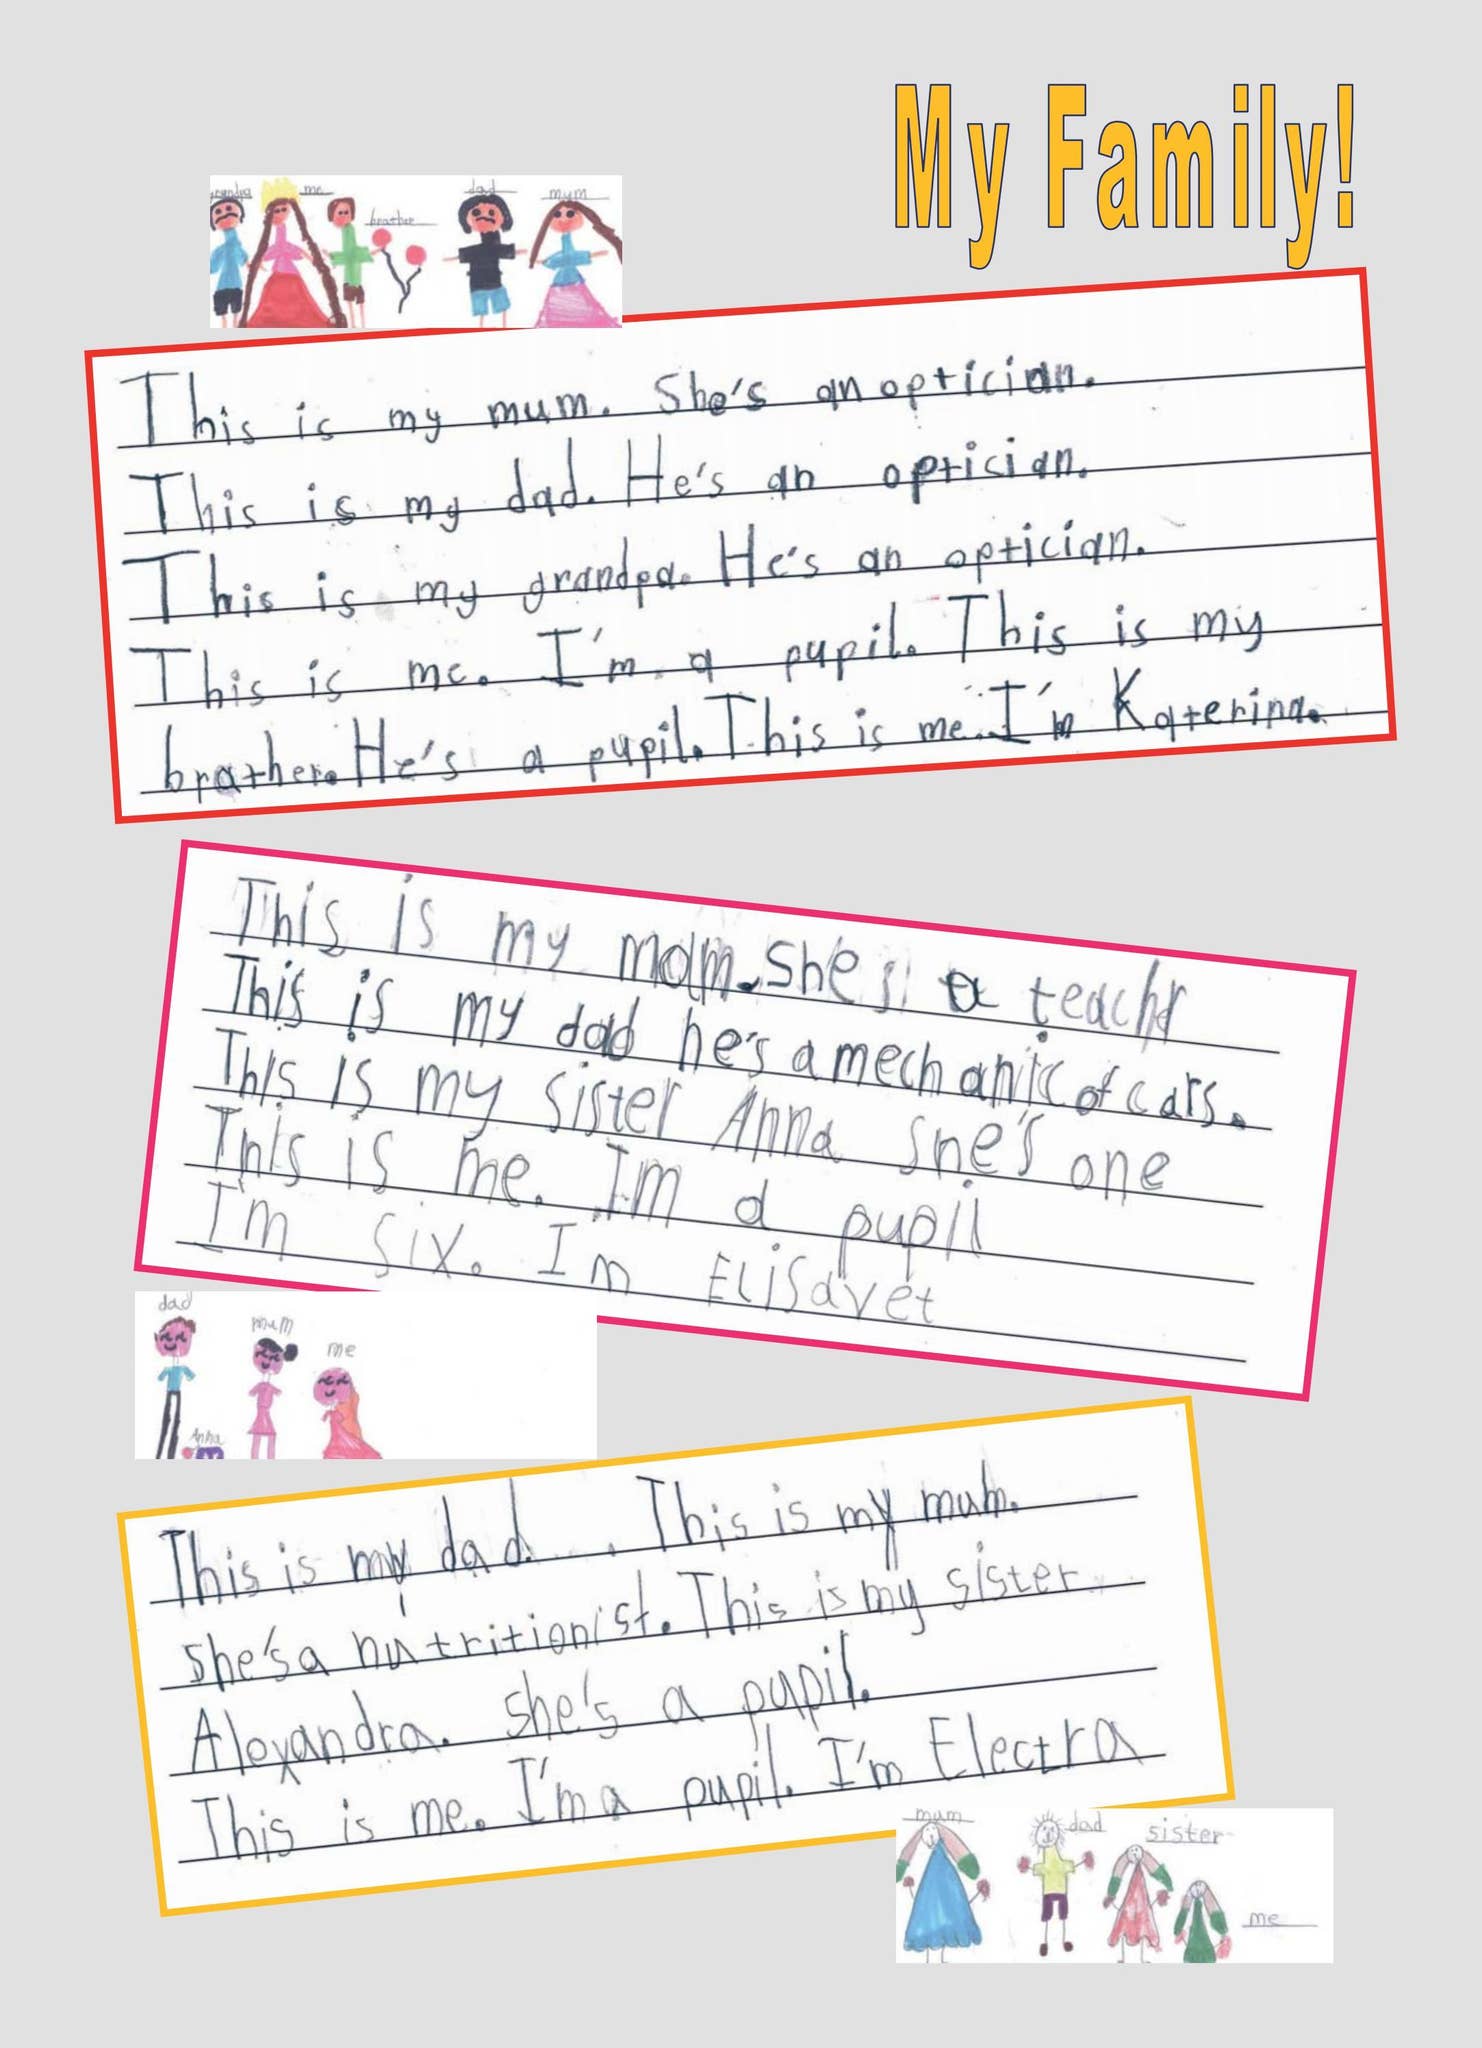 My Family!
grandpa me dad mum
brother
This is my mum. She's an optician.
This is my dad. He's an optician.
This is my grandpa. He's an optician.
This is me. I'm a pupil. This is my
brather. He's a pupil. This is me. I'm Katerina.
This is my mom. She's a teachr
This is my dad he's a mechanic of cars.
This is my sister Anna she's one
This is me. I'm a pupil
I'm six. Im Elisavet
dad
mum
me
Anna
This is my dad. This is my mum.
she's a nutritionist. This is my sister
Alexandra. She's a pupil.
This is me. I'm a pupil. I'm Electra
mum dad sister
me